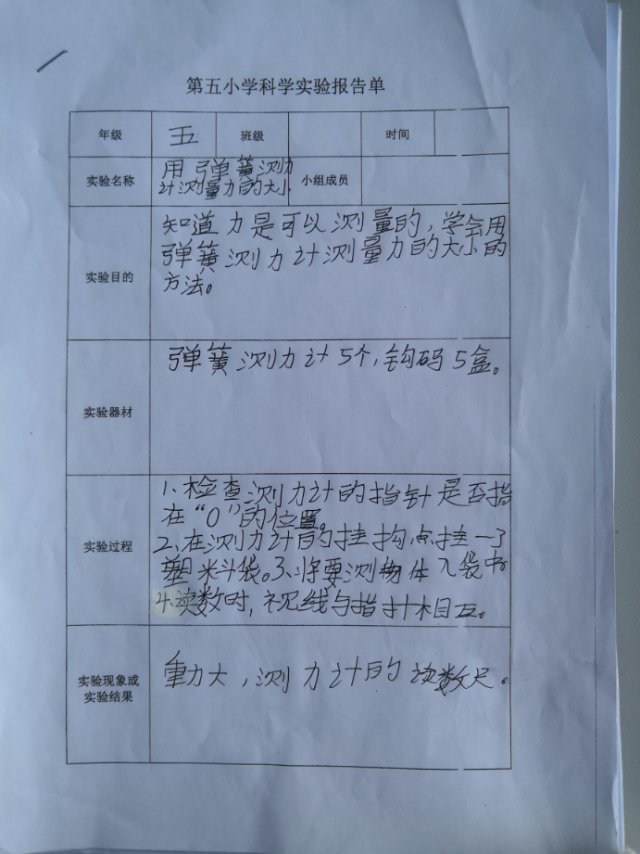 第五小学科学实验报告单
年级 五 班级 时间
实验名称 用弹簧测力计测量力的大小 小组成员
实验目的
知道力是可以测量的,学会用
弹簧测力计测量力的大小的
方法。
实验器材
弹簧测力计5个,钩码5盒。
实验过程
1、检查测力计的指针是否指
在“0”的位置。
2、在测力计的挂钩点挂一了
塑米斗袋。3、将要测物体入袋中
4.读数时,视线与指针相互。
实验现象或
实验结果
重力大,测力计的读数尺。